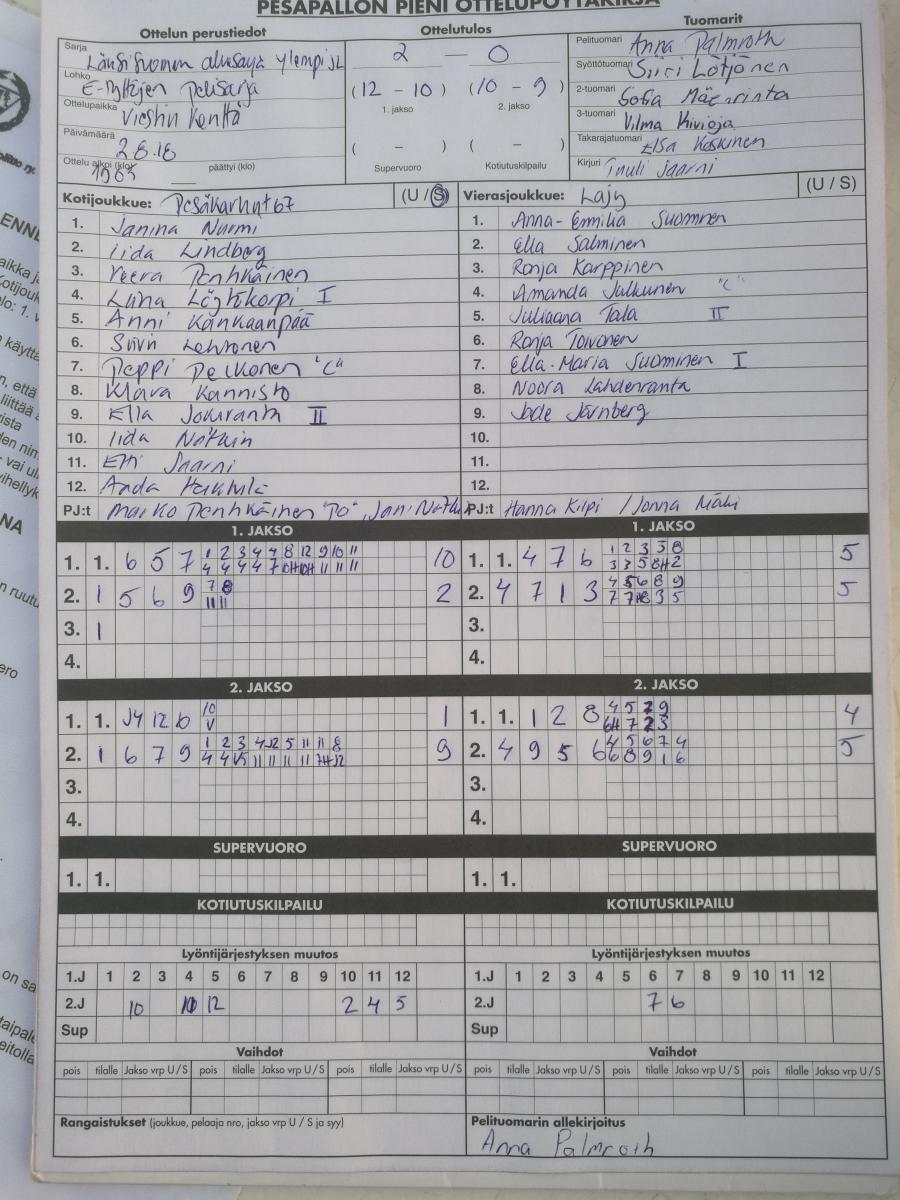 PESÄPALLON PIENI OTTELUPÖYTÄKIRJA
Ottelun perustiedot
Sarja
Länsi-Suomen aluesarja ylempi JL
Lohko
E-tyttöjen pelisarja
Ottelupaikka
Päivämäärä
2.8.18
Ottelu alkoi (klo)
päättyi (klo)
Ottelutulos
2 — 0
(12 - 10) (10 - 9)
1. jakso 2. jakso
( - ) ( - )
Supervuoro Kotiutuskilpailu
Tuomarit
Pelituomari Anna Palmroth
Syöttötuomari Siiri Lötjönen
2-tuomari Sofia
3-tuomari Vilma Kivioja
Takarajatuomari Elsa Koskinen
Kirjuri Tuuli Jaarni
Kotijoukkue: Pesäkarhut 67 (U / S)
1. Janina Nurmi
2. Iida Lindberg
3. Veera Penhkäinen
4. Luna I
5. Anni Kankaanpää
6. Siivi Lehtonen
7. Peppi Pelkonen "C"
8. Klara Kannisto
9. Ella Jokiranta II
10. Iida
11. Etti Jaarni
12. Aada
PJ:t Marko Penhkäinen "PO", Jani
Vierasjoukkue: Lajy (U / S)
1. Anna-Emmilia Suominen
2. Ella Salminen
3. Ronja Karppinen
4. Amanda Julkunen "C"
5. Juliaana Tala II
6. Ronja Toivonen
7. Ella-Maria Suominen I
8. Noora Lahdenranta
9. Jade Järnberg
10.
11.
12.
PJ:t Hanna Kilpi / Jonna Mäki
1. JAKSO
1. 1. 6 5 7 1 2 3 4 4 8 12 9 10 11 10
4 4 4 4 7 10H 10H 11 11 11
2. 1 5 6 9 7 8 2
11 11
3. 1
4.
1. JAKSO
1. 1. 4 7 6 1 2 3 5 8 5
3 3 5 8H 2
2. 4 7 1 3 4 5 6 8 9 5
3.
4.
2. JAKSO
1. 1. J4 12 6 10 1
V
2. 1 6 7 9 1 2 3 4 J2 5 11 11 8 9
3.
4.
2. JAKSO
1. 1. 1 2 8 4 5 7 9 4
6H 7 2 3
2. 4 9 5 6 4 5 6 7 4 5
6 8 9 1 6
3.
4.
SUPERVUORO
1. 1.
SUPERVUORO
1. 1.
KOTIUTUSKILPAILU
KOTIUTUSKILPAILU
Lyöntijärjestyksen muutos
1.J 1 2 3 4 5 6 7 8 9 10 11 12
2.J 10 12 2 4 5
Sup
Lyöntijärjestyksen muutos
1.J 1 2 3 4 5 6 7 8 9 10 11 12
2.J 7 6
Sup
Vaihdot
pois tilalle Jakso vrp U / S pois tilalle Jakso vrp U / S pois tilalle Jakso vrp U / S
Vaihdot
pois tilalle Jakso vrp U / S pois tilalle Jakso vrp U / S pois tilalle Jakso vrp U / S
Rangaistukset (joukkue, pelaaja nro, jakso vrp U / S ja syy)
Pelituomarin allekirjoitus
Anna Palmroth